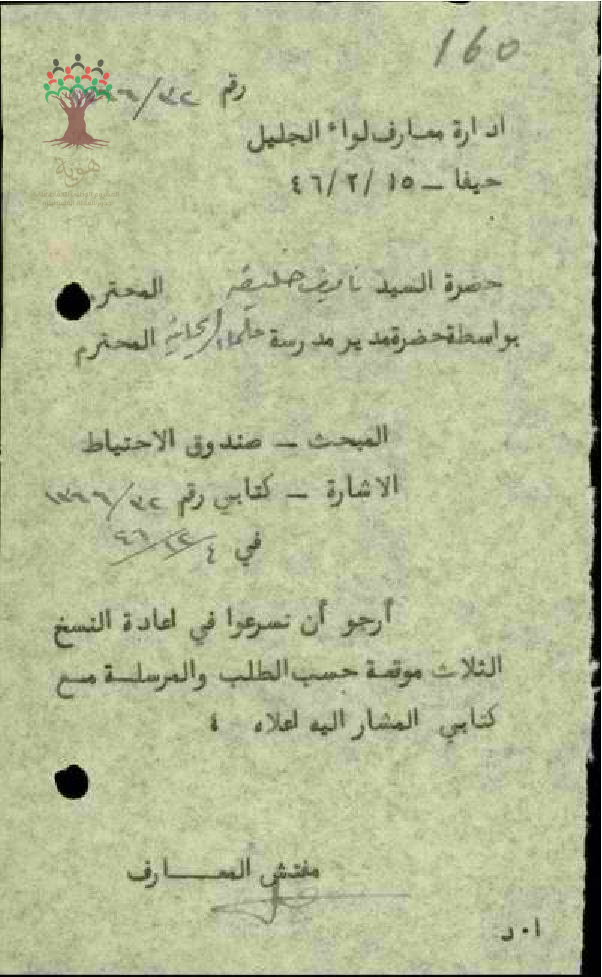 160
رقم ٣٢/
ادارة معارف لواء الجليل
حيفا - ١٥/٢/٤٦
هوية
حضرة السيد نايف خليفه المحترم
بواسطة حضرة مدير مدرسة المحترم
المبحث - صندوق الاحتياط
الاشارة - كتابي رقم ٣٢/١٣٦٦
في ٤
أرجو أن تسرعوا في اعادة النسخ
الثلاث موقعة حسب الطلب والمرسلة مع
كتابي المشار اليه اعلاه ٤
مفتش المعارف
ا٠د